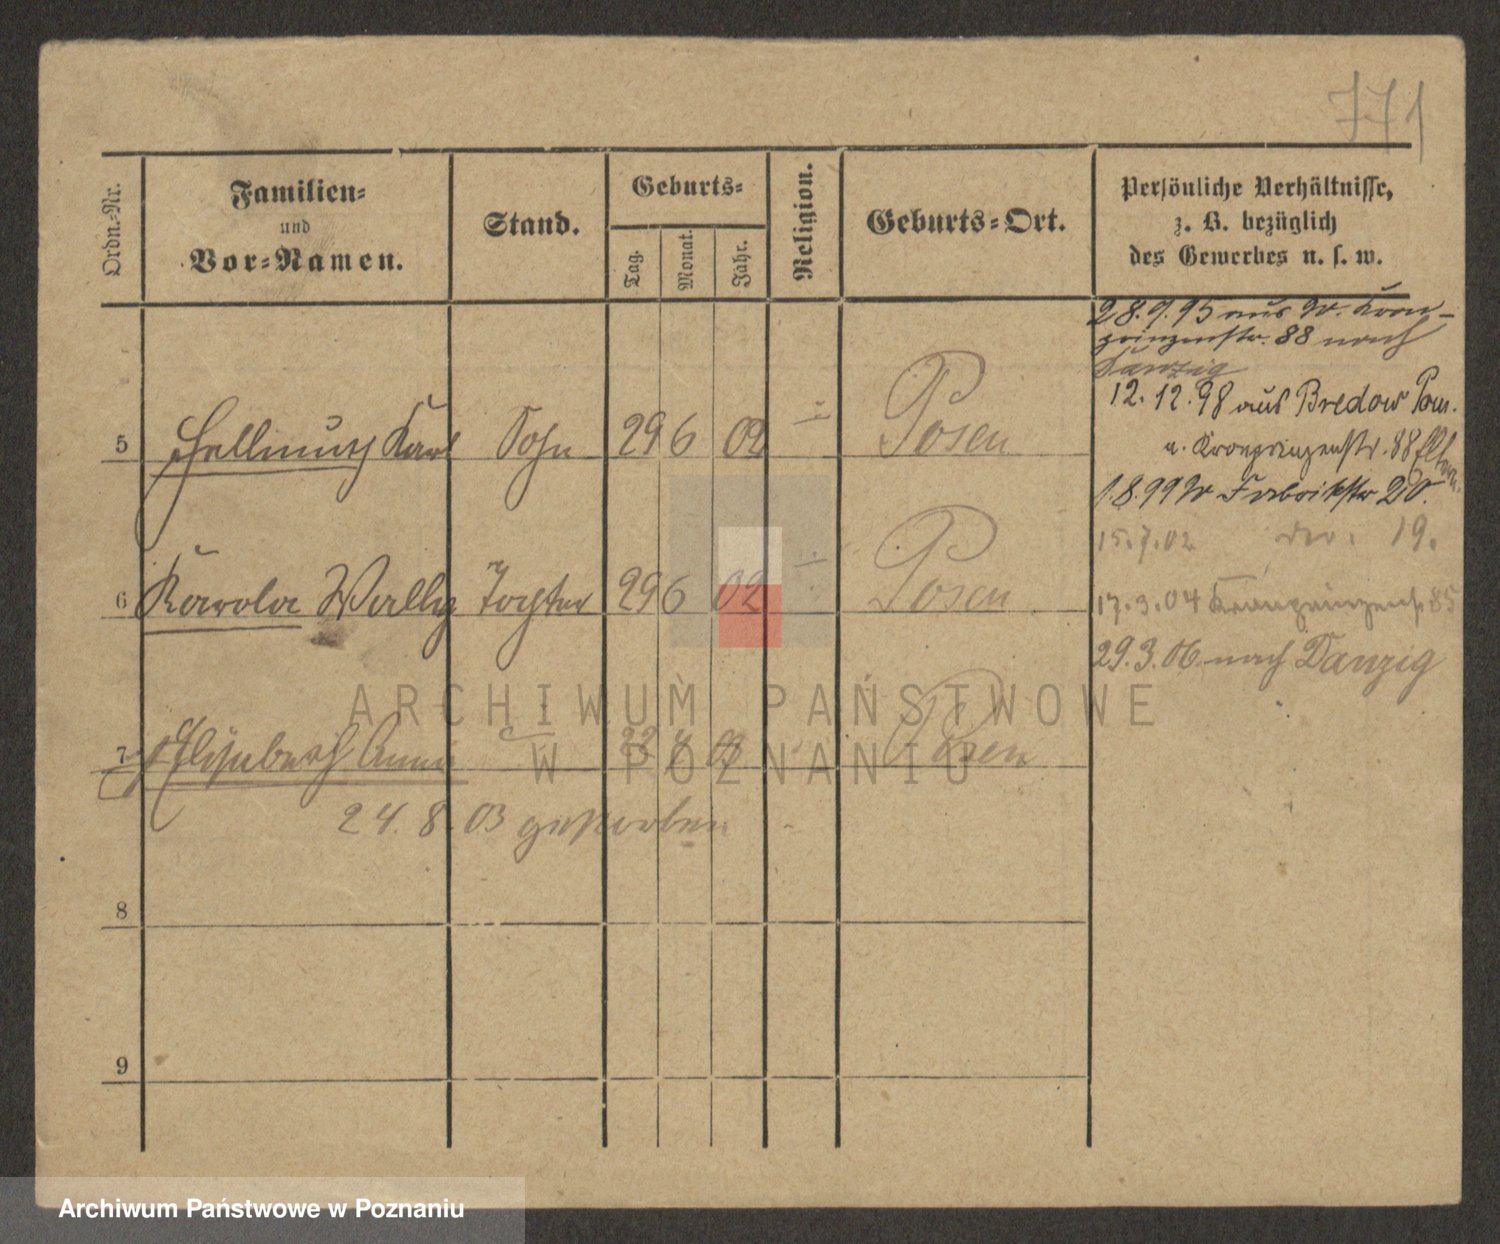 771
Ordn.-Nr.
Familien-
und
Vor-Namen.
Stand.
Geburts-
Tag.
Monat.
Jahr.
Religion.
Geburts-Ort.
Persönliche Verhältnisse,
z. B. bezüglich
des Gewerbes u. s. w.
28.9.95 aus W. Kron-
prinzenstr. 88 nach
Danzig
12.12.98 aus Bredow Pom.
n. Kronprinzenstr. 88
5 Hellmuth Karl Sohn 29 6 02 Posen
1.8.99 W Fabrikstr 20.
15.7.02 19.
6 Karola Wally Tochter 29 6 02 Posen
17.3.04 Kronprinzenst. 85
29.3.06 nach Danzig
7 Elisabeth Anna Posen
24.8.03 gestorben
8
9
ARCHIWUM PAŃSTWOWE
W POZNANIU
Archiwum Państwowe w Poznaniu